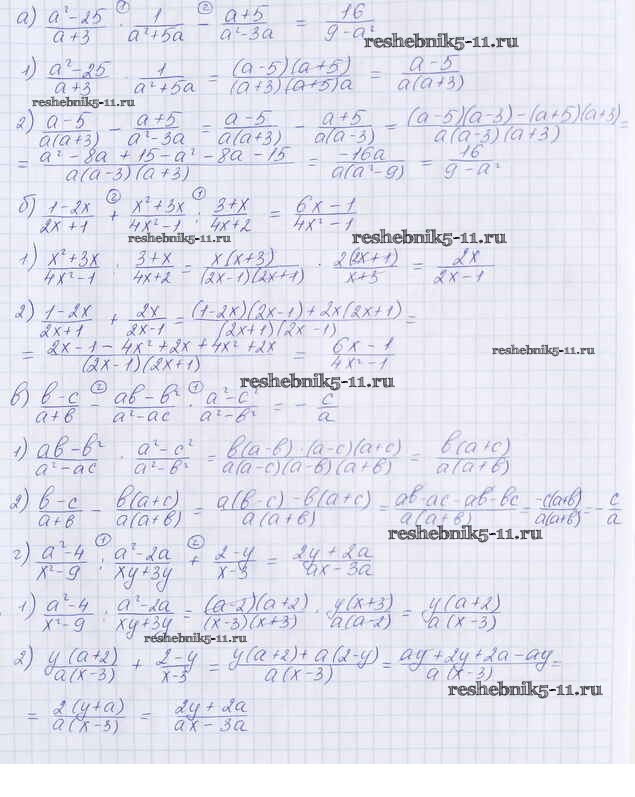 а) (a²-25)/(a+3) · 1/(a²+5a) - (a+5)/(a²-3a) = 16/(9-a²)
reshebnik5-11.ru
1) (a²-25)/(a+3) · 1/(a²+5a) = ((a-5)(a+5))/((a+3)(a+5)a) = (a-5)/(a(a+3))
reshebnik5-11.ru
2) (a-5)/(a(a+3)) - (a+5)/(a²-3a) = (a-5)/(a(a+3)) - (a+5)/(a(a-3)) = ((a-5)(a-3)-(a+5)(a+3))/(a(a-3)(a+3)) =
= (a²-8a+15-a²-8a-15)/(a(a-3)(a+3)) = (-16a)/(a(a²-9)) = 16/(9-a²)
б) (1-2x)/(2x+1) + (x²+3x)/(4x²-1) : (3+x)/(4x+2) = (6x-1)/(4x²-1)
reshebnik5-11.ru reshebnik5-11.ru
1) (x²+3x)/(4x²-1) : (3+x)/(4x+2) = (x(x+3))/((2x-1)(2x+1)) · (2(2x+1))/(x+3) = 2x/(2x-1)
2) (1-2x)/(2x+1) + 2x/(2x-1) = ((1-2x)(2x-1)+2x(2x+1))/((2x+1)(2x-1)) =
= (2x-1-4x²+2x+4x²+2x)/((2x-1)(2x+1)) = (6x-1)/(4x²-1)
reshebnik5-11.ru
reshebnik5-11.ru
в) (b-c)/(a+b) - (ab-b²)/(a²-ac) · (a²-c²)/(a²-b²) = - c/a
1) (ab-b²)/(a²-ac) · (a²-c²)/(a²-b²) = (b(a-b)·(a-c)(a+c))/(a(a-c)(a-b)(a+b)) = (b(a+c))/(a(a+b))
2) (b-c)/(a+b) - (b(a+c))/(a(a+b)) = (a(b-c)-b(a+c))/(a(a+b)) = (ab-ac-ab-bc)/(a(a+b)) = (-c(a+b))/(a(a+b)) = - c/a
reshebnik5-11.ru
г) (a²-4)/(x²-9) : (a²-2a)/(xy+3y) + (2-y)/(x-3) = (2y+2a)/(ax-3a)
1) (a²-4)/(x²-9) : (a²-2a)/(xy+3y) = ((a-2)(a+2))/((x-3)(x+3)) · (y(x+3))/(a(a-2)) = (y(a+2))/(a(x-3))
reshebnik5-11.ru
2) (y(a+2))/(a(x-3)) + (2-y)/(x-3) = (y(a+2)+a(2-y))/(a(x-3)) = (ay+2y+2a-ay)/(a(x-3)) =
reshebnik5-11.ru
= (2(y+a))/(a(x-3)) = (2y+2a)/(ax-3a)